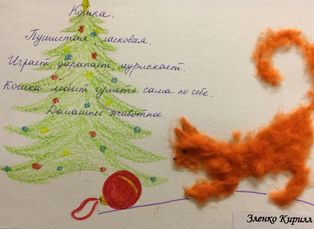 Кошка.
Пушистая, ласковая.
Играет, царапает, мурлыкает.
Кошка любит гулять сама по себе.
Домашнее животное.
Зленко Кирилл